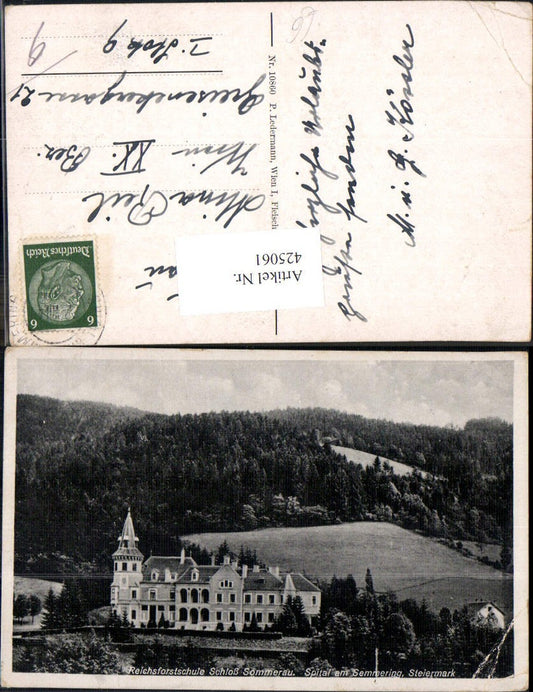 I. Stock 9
Greiseneckergasse 21
Wien XX. Bez.
Mina Beil
Nr. 10860 P. Ledermann, Wien I, Fleisch
Urlaubs-
Grüße senden
M. u. J. Kössler
Artikel Nr.
425061
Deutsches Reich
6 6
Reichsforstschule Schloß Sommerau. Spital am Semmering, Steiermark